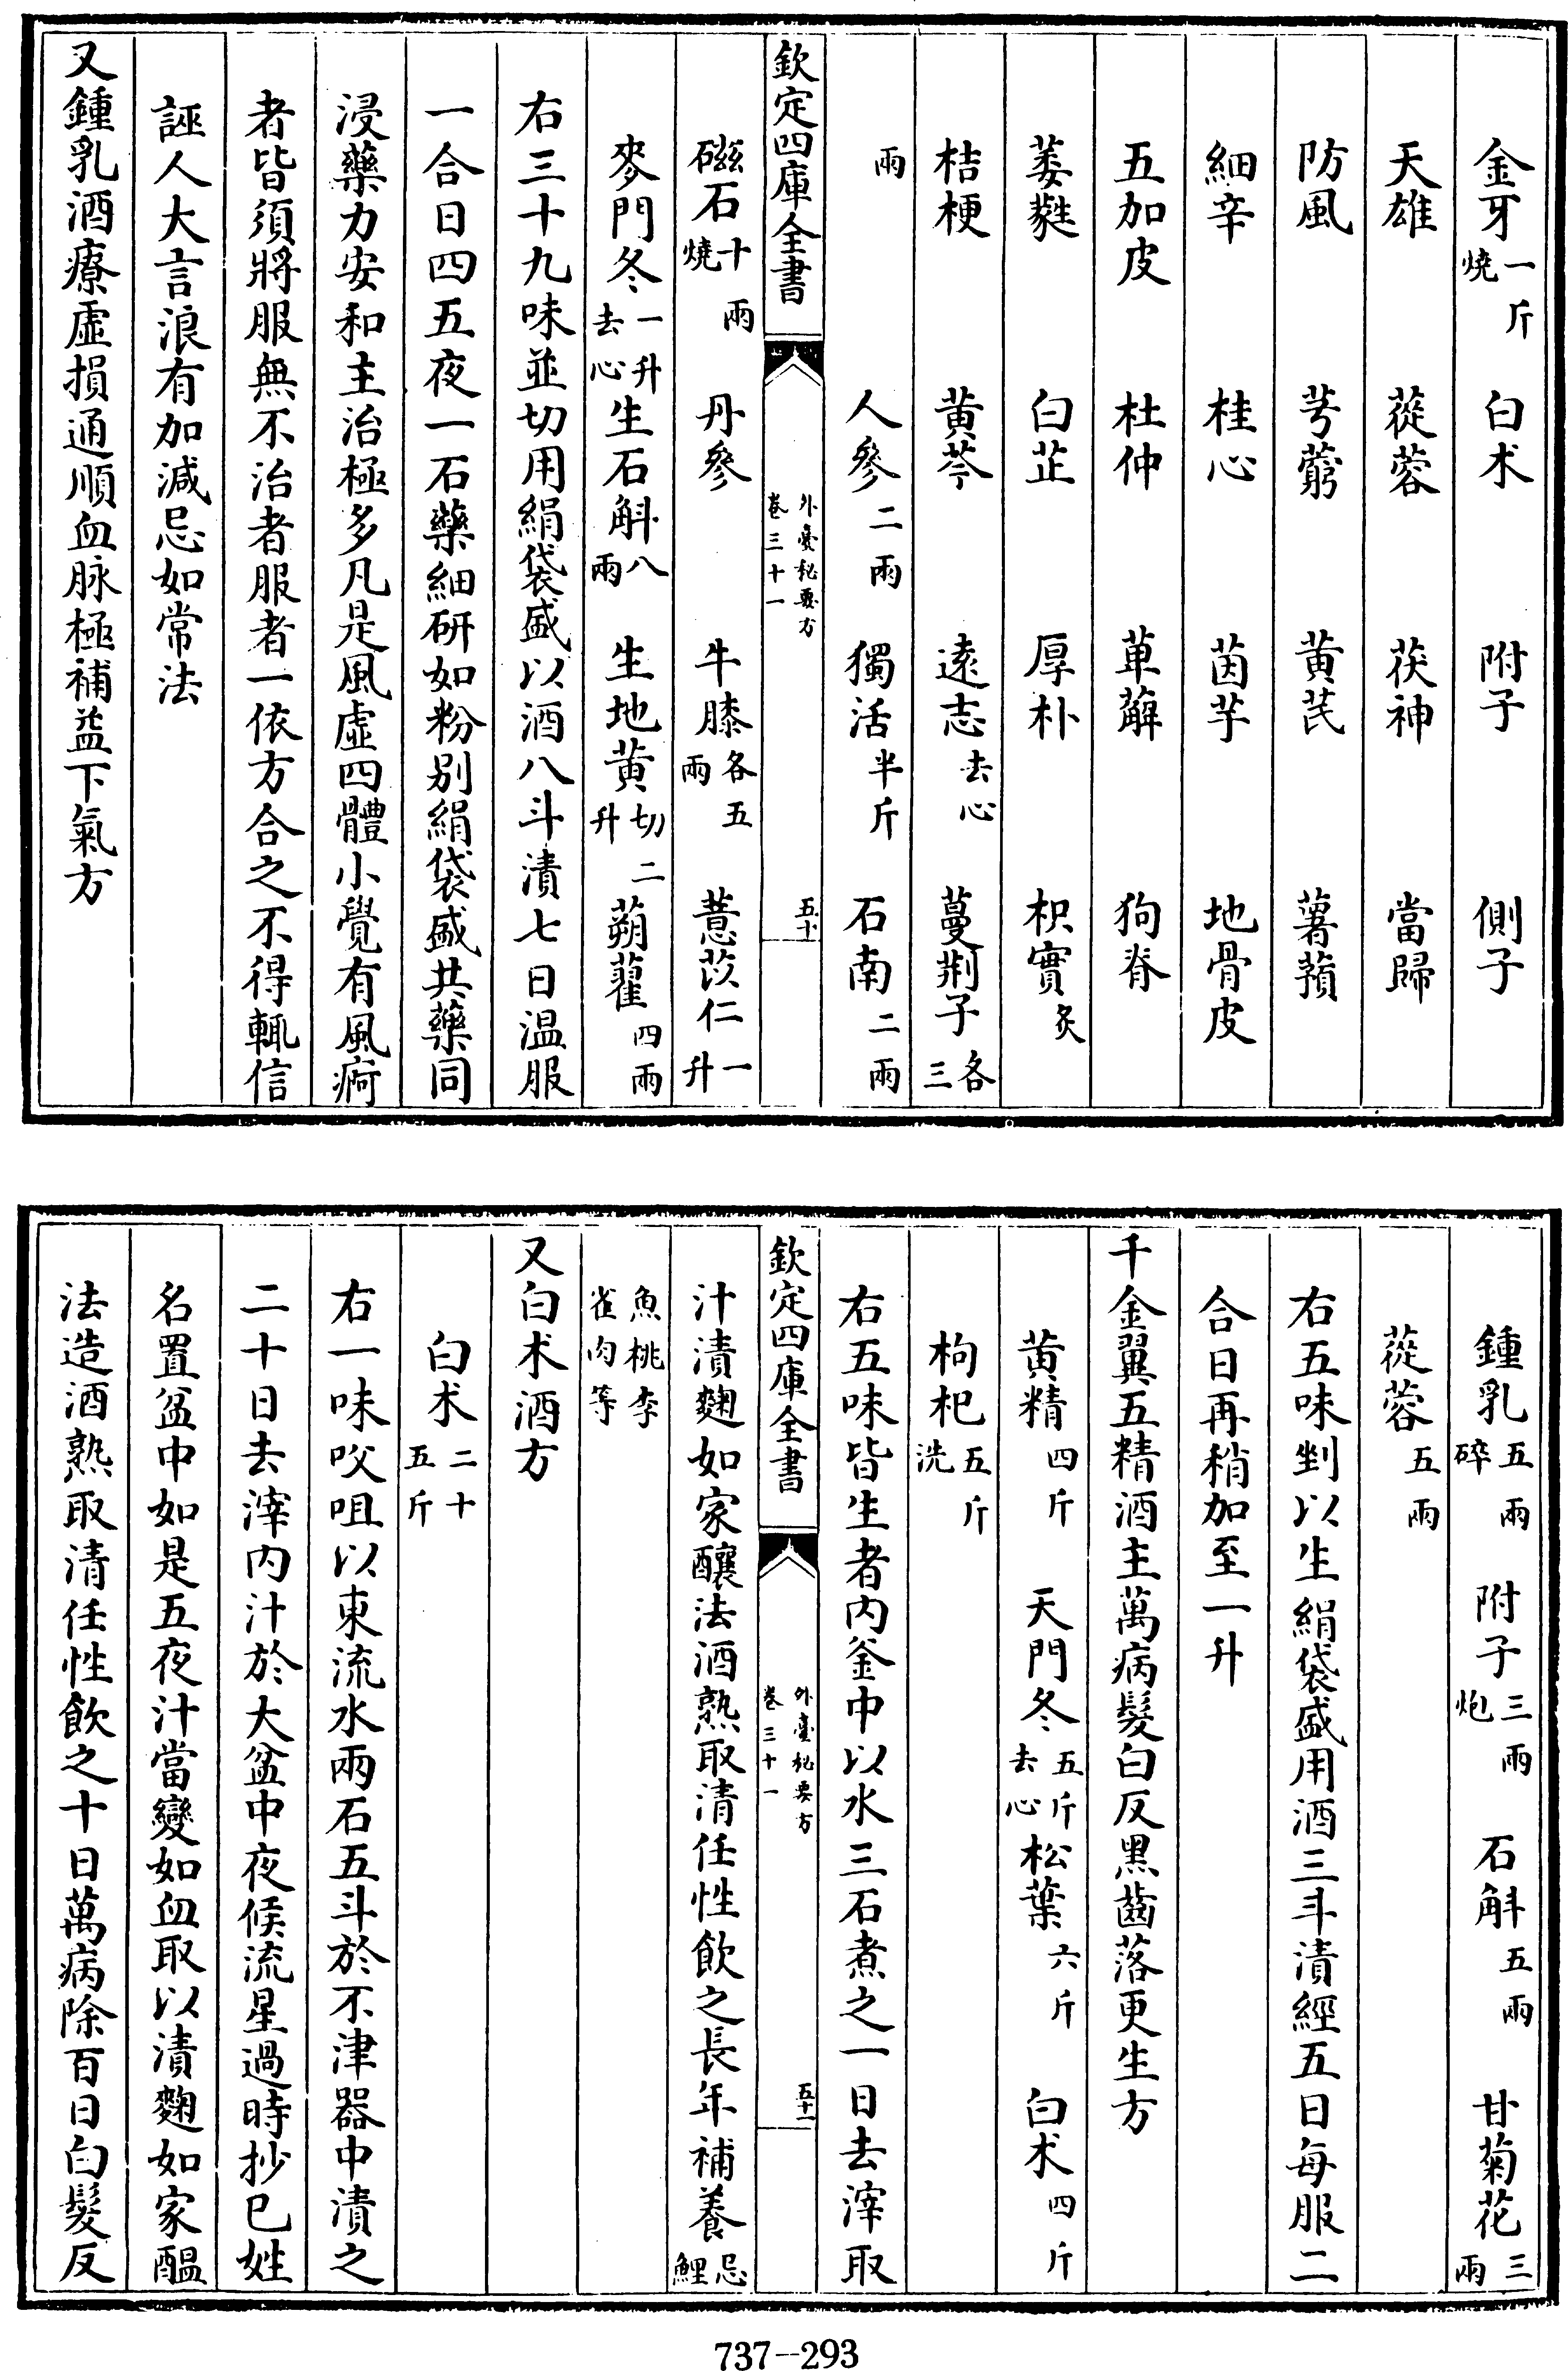 金牙一斤燒 白朮 附子 側子
天雄 蓯蓉 茯神 當歸
防風 芎藭 黄芪 薯蕷
細辛 桂心 茵芋 地骨皮
五加皮 杜仲 萆薢 狗脊
萎蕤 白芷 厚朴 枳實炙
桔梗 黄芩 遠志去心 蔓荆子各三
兩 人參二兩 獨活半斤 石南二兩
欽定四庫全書 外臺秘要方卷三十一 五十
磁石十兩燒 丹參 牛膝各五兩 薏苡仁一升
麥門冬一升去心 生石斛八兩 生地黄切二升 蒴藋四兩
右三十九味並切用絹袋盛以酒八斗漬七日温服
一合日四五夜一石藥細研如粉别絹袋盛共藥同
浸藥力安和主治極多凡是風虛四體小覺有風痾
者皆須將服無不治者服者一依方合之不得輒信
誣人大言浪有加減忌如常法
又鍾乳酒療虛損通順血脉極補益下氣方
鍾乳五兩碎 附子三兩炮 石斛五兩 甘菊花三兩
蓯蓉五兩
右五味剉以生絹袋盛用酒三斗漬經五日每服二
合日再稍加至一升
千金翼五精酒主萬病髮白反黒齒落更生方
黄精四斤 天門冬五斤去心 松葉六斤 白朮四斤
枸杞五斤洗
右五味皆生者内釜中以水三石煮之一日去滓取
欽定四庫全書 外臺秘要方卷三十一 五十一
汁漬麴如家釀法酒熟取清任性飲之長年補養忌鯉
魚桃李雀肉等
又白朮酒方
白朮二十五斤
右一味㕮咀以東流水兩石五斗於不津器中漬之
二十日去滓内汁於大盆中夜候流星過時抄已姓
名置盆中如是五夜汁當變如血取以漬麴如家醖
法造酒熟取清任性飲之十日萬病除百日白髮反
737--293